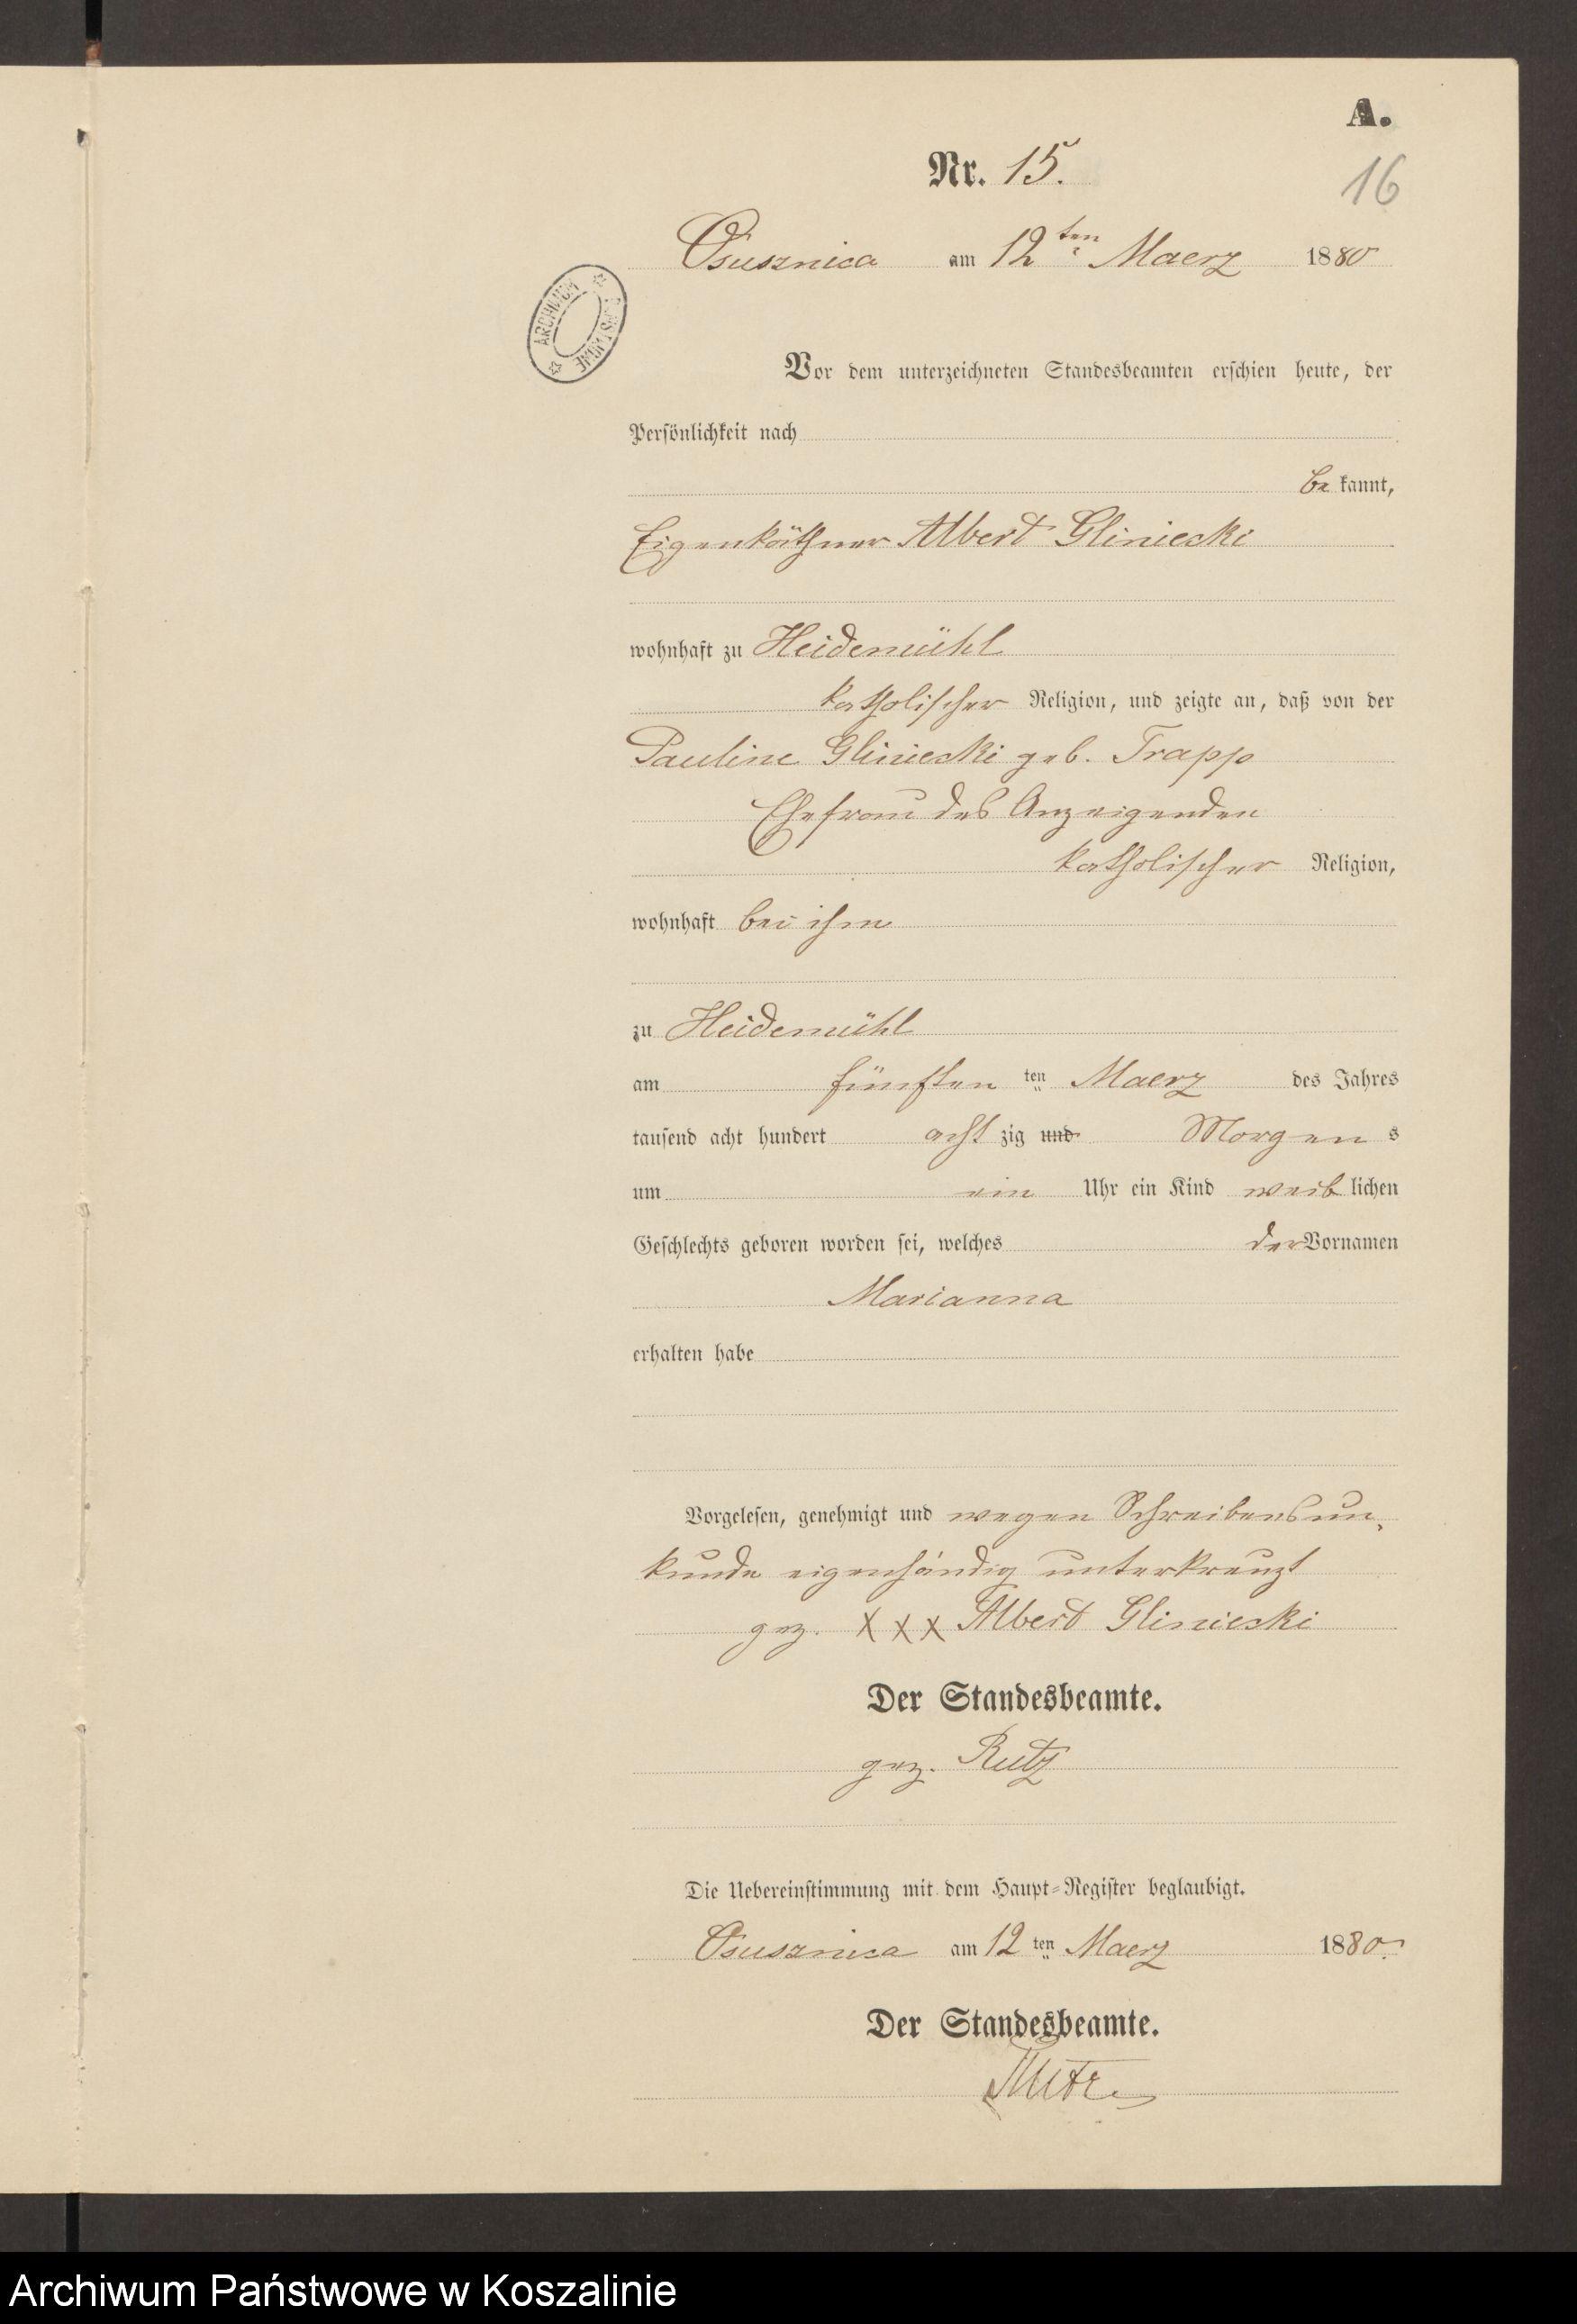 A.
Nr. 15.
16
Osusznica am 12ten Maerz 1880
ARCHIWUM
Vor dem unterzeichneten Standesbeamten erschien heute, der
Persönlichkeit nach
be kannt,
Eigenkäthner Albert Gliniecki
wohnhaft zu Heidemühl
katholischer Religion, und zeigte an, daß von der
Pauline Gliniecki geb. Trapp
Ehefrau des Anzeigenden
katholischer Religion,
wohnhaft bei ihm
zu Heidemühl
am fünften ten Maerz des Jahres
tausend acht hundert acht zig und Morgen s
um ein Uhr ein Kind weib lichen
Geschlechts geboren worden sei, welches den Vornamen
Marianna
erhalten habe
Vorgelesen, genehmigt und wegen Schreibensun-
kunde eigenhändig unterkreuzt
gez. X X X Albert Gliniecki
Der Standesbeamte.
gez. Rutz
Die Uebereinstimmung mit dem Haupt-Register beglaubigt.
Osusznica am 12 ten Maerz 1880.
Der Standesbeamte.
Archiwum Państwowe w Koszalinie